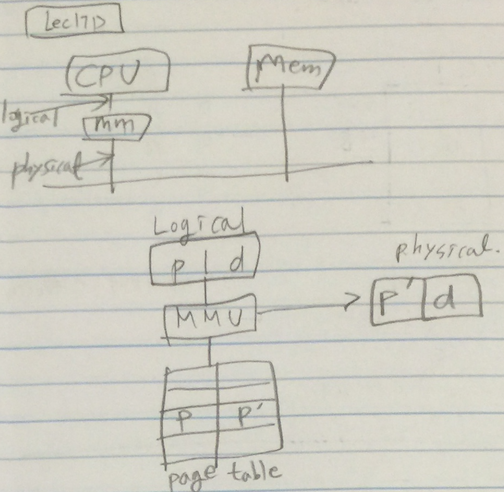 Lec17D
CPU
Mem
logical
MM
physical
Logical
p d
physical.
MMU
p' d
p p'
page table